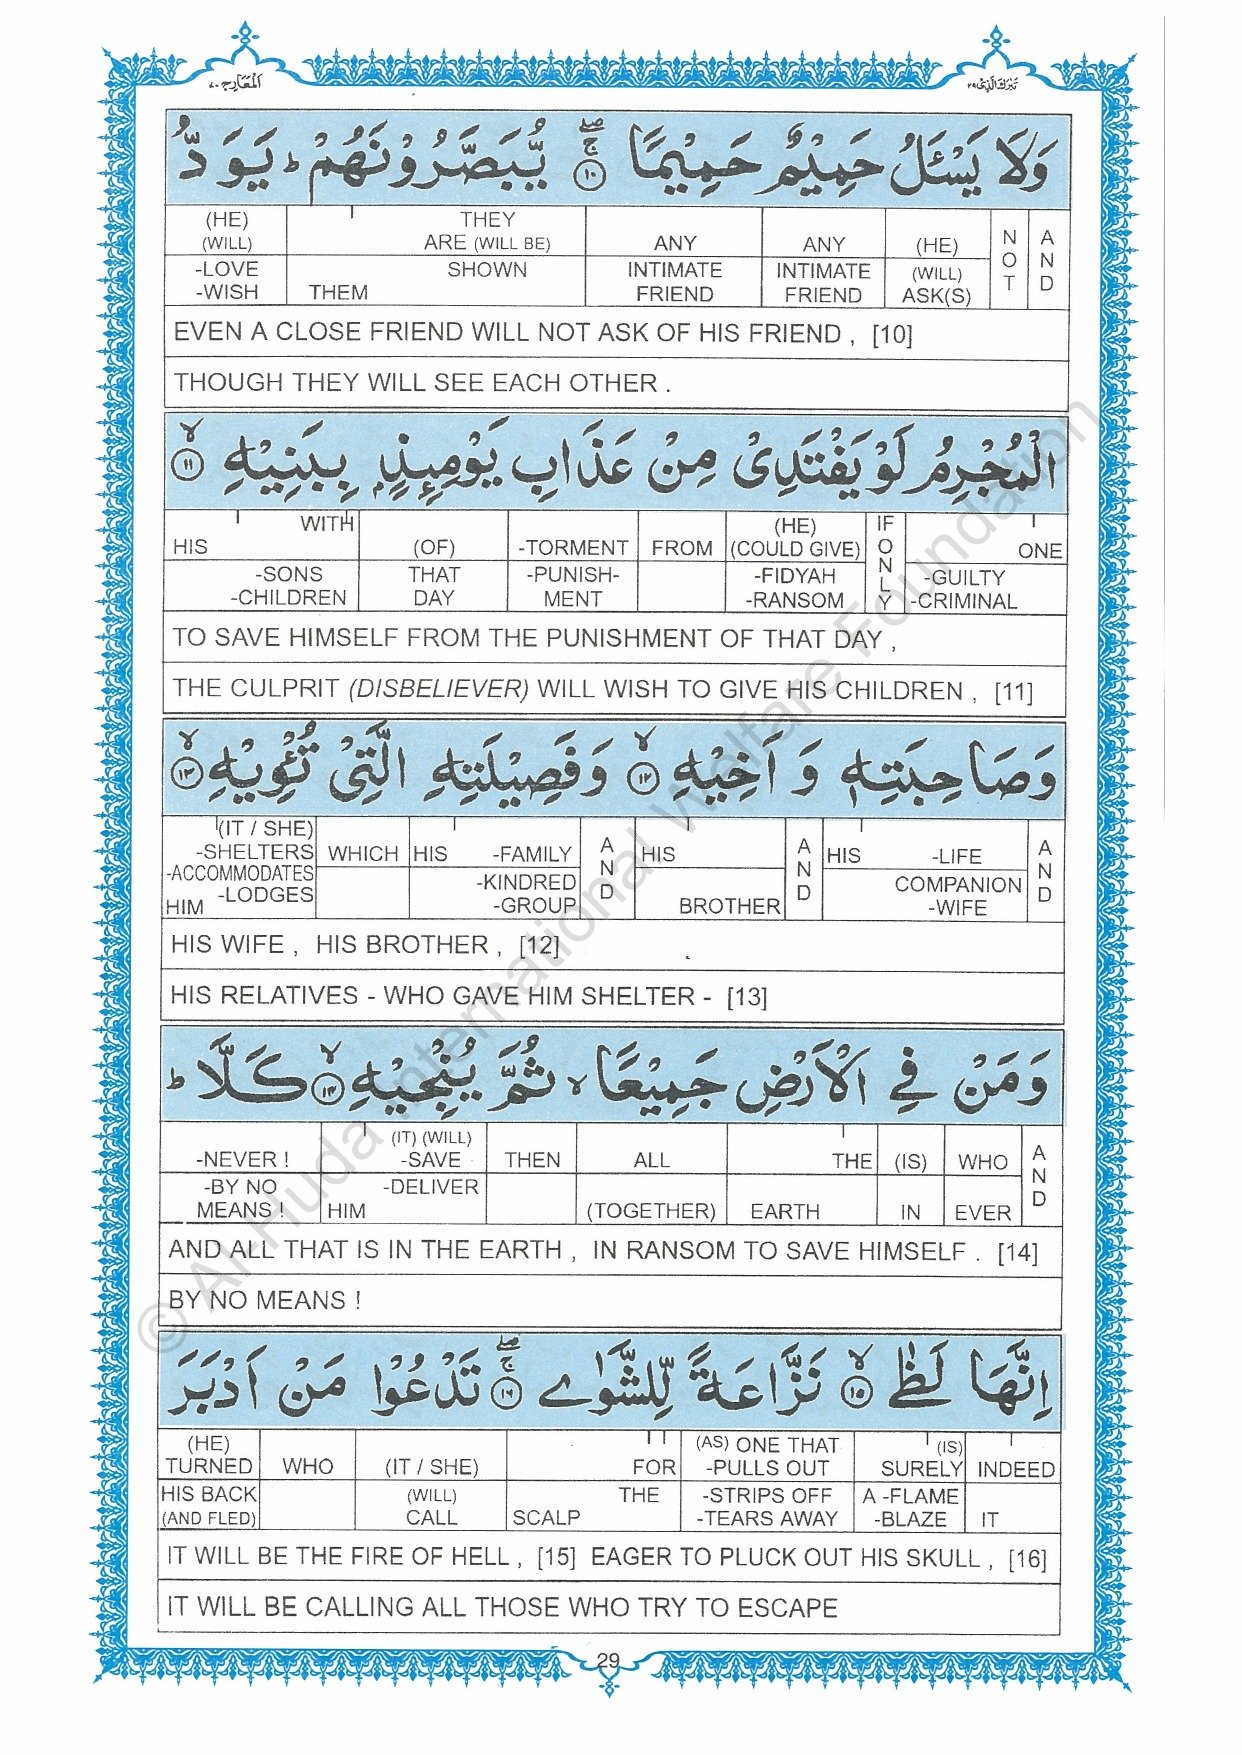 المعارج ٧٠
تبرك الذى ٢٩
وَلَا يَسْـَٔلُ حَمِيْمٌ حَمِيْمًا ۚۖ ١٠ يُّبَصَّرُوْنَهُمْ ؕ يَوَدُّ
(HE) THEY
(WILL) ARE (WILL BE) ANY ANY (HE) NOT AND
-LOVE SHOWN INTIMATE INTIMATE (WILL)
-WISH THEM FRIEND FRIEND ASK(S)
EVEN A CLOSE FRIEND WILL NOT ASK OF HIS FRIEND , [10]
THOUGH THEY WILL SEE EACH OTHER .
الْمُجْرِمُ لَوْ يَفْتَدِىْ مِنْ عَذَابِ يَوْمِئِذٍۭ بِبَنِيْهِ ۙ ١١
WITH (HE) IF ONLY
HIS (OF) -TORMENT FROM (COULD GIVE) ONE
-SONS THAT -PUNISH- -FIDYAH -GUILTY
-CHILDREN DAY MENT -RANSOM -CRIMINAL
TO SAVE HIMSELF FROM THE PUNISHMENT OF THAT DAY ,
THE CULPRIT (DISBELIEVER) WILL WISH TO GIVE HIS CHILDREN , [11]
وَصَاحِبَتِهٖ وَ اَخِيْهِ ۙ ١٢ وَفَصِيْلَتِهِ الَّتِىْ تُـْٔوِيْهِ ۙ ١٣
(IT / SHE)
-SHELTERS WHICH HIS -FAMILY AND HIS AND HIS -LIFE AND
-ACCOMMODATES -KINDRED COMPANION
-LODGES -GROUP BROTHER -WIFE
HIM
HIS WIFE , HIS BROTHER , [12]
HIS RELATIVES - WHO GAVE HIM SHELTER - [13]
وَمَنْ فِى الْاَرْضِ جَمِيْعًا ۙ ثُمَّ يُنْجِيْهِ ۙ ١٤ كَلَّا ؕ
(IT) (WILL)
-NEVER ! -SAVE THEN ALL THE (IS) WHO AND
-BY NO -DELIVER
MEANS ! HIM (TOGETHER) EARTH IN EVER
AND ALL THAT IS IN THE EARTH , IN RANSOM TO SAVE HIMSELF . [14]
BY NO MEANS !
اِنَّهَا لَظٰى ۙ ١٥ نَزَّاعَةً لِّلشَّوٰى ۚۖ ١٦ تَدْعُوْا مَنْ اَدْبَرَ
(HE) (AS) ONE THAT (IS)
TURNED WHO (IT / SHE) FOR -PULLS OUT SURELY INDEED
HIS BACK (WILL) THE -STRIPS OFF A -FLAME
(AND FLED) CALL SCALP -TEARS AWAY -BLAZE IT
IT WILL BE THE FIRE OF HELL , [15] EAGER TO PLUCK OUT HIS SKULL , [16]
IT WILL BE CALLING ALL THOSE WHO TRY TO ESCAPE
29
© Al Huda International Welfare Foundation